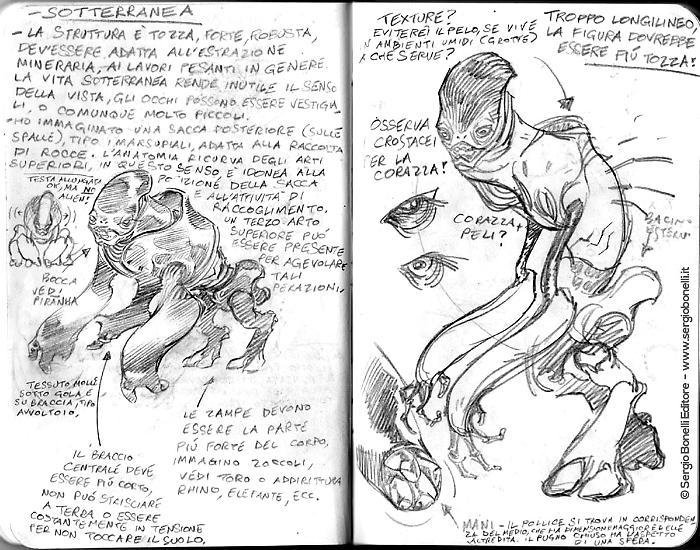 - SOTTERRANEA
- LA STRUTTURA È TOZZA, FORTE, ROBUSTA,
DEV'ESSERE ADATTA ALL'ESTRAZIONE
MINERARIA, AI LAVORI PESANTI IN GENERE.
LA VITA SOTTERRANEA RENDE INUTILE IL SENSO
DELLA VISTA, GLI OCCHI POSSONO ESSERE VESTIGIA
LI, O COMUNQUE MOLTO PICCOLI.
- HO IMMAGINATO UNA SACCA POSTERIORE (SULLE
SPALLE), TIPO I MARSUPIALI, ADATTA ALLA RACCOLTA
DI ROCCE. L'ANATOMIA RICURVA DEGLI ARTI
SUPERIORI, IN QUESTO SENSO, È IDONEA ALLA
POSIZIONE DELLA SACCA
E ALL'ATTIVITÀ DI
RACCOGLIMENTO.
UN TERZO ARTO
SUPERIORE PUÒ
ESSERE PRESENTE
PER AGEVOLARE
TALI
OPERAZIONI.
TESTA ALLUNGATA
OK, MA NO
ALIEN!
BOCCA
VEDI
PIRANHA
TESSUTO MOLLE
SOTTO GOLA E
SU BRACCIA, TIPO
AVVOLTOIO.
IL BRACCIO
CENTRALE DEVE
ESSERE PIÙ CORTO,
NON PUÒ STRISCIARE
A TERRA O ESSERE
COSTANTEMENTE IN TENSIONE
PER NON TOCCARE IL SUOLO.
LE ZAMPE DEVONO
ESSERE LA PARTE
PIÙ FORTE DEL CORPO,
IMMAGINO ZOCCOLI,
VEDI TORO O ADDIRITTURA
RHINO, ELEFANTE, ECC.
TEXTURE?
EVITEREI IL PELO, SE VIVE
IN AMBIENTI UMIDI (GROTTE)
A CHE SERVE?
TROPPO LONGILINEO,
LA FIGURA DOVREBBE
ESSERE PIÙ TOZZA!
OSSERVA
CROSTACEI
PER LA
CORAZZA!
CORAZZA +
PELI?
BACINO
ESTERNO
MANI - IL POLLICE SI TROVA IN CORRISPONDEN
ZA DEL MEDIO, CHE HA DIMENSIONE MAGGIORE DELLE
ALTRE DITA. IL PUGNO CHIUSO HA L'ASPETTO
DI UNA SFERA.
© Sergio Bonelli Editore - www.sergiobonelli.it